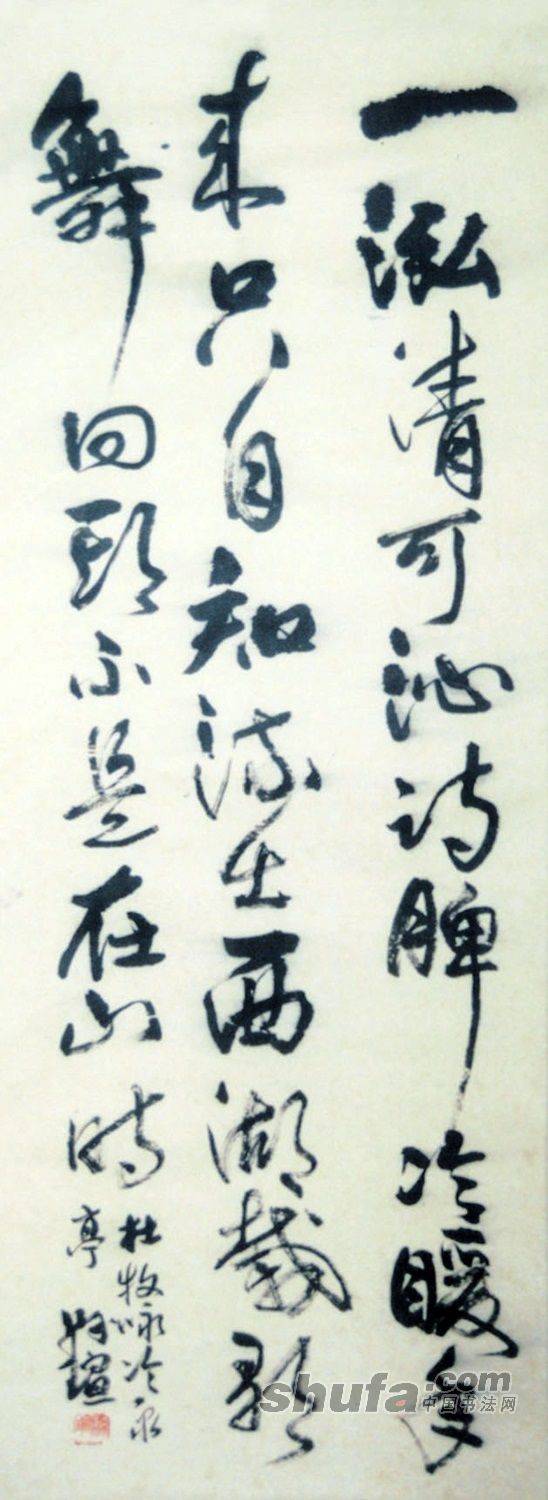 一泓清可沁诗脾冷暖年
来只自知流出西湖载歌
舞回头不是在山时
杜牧咏冷泉
亭
shufa.com
中国书法网